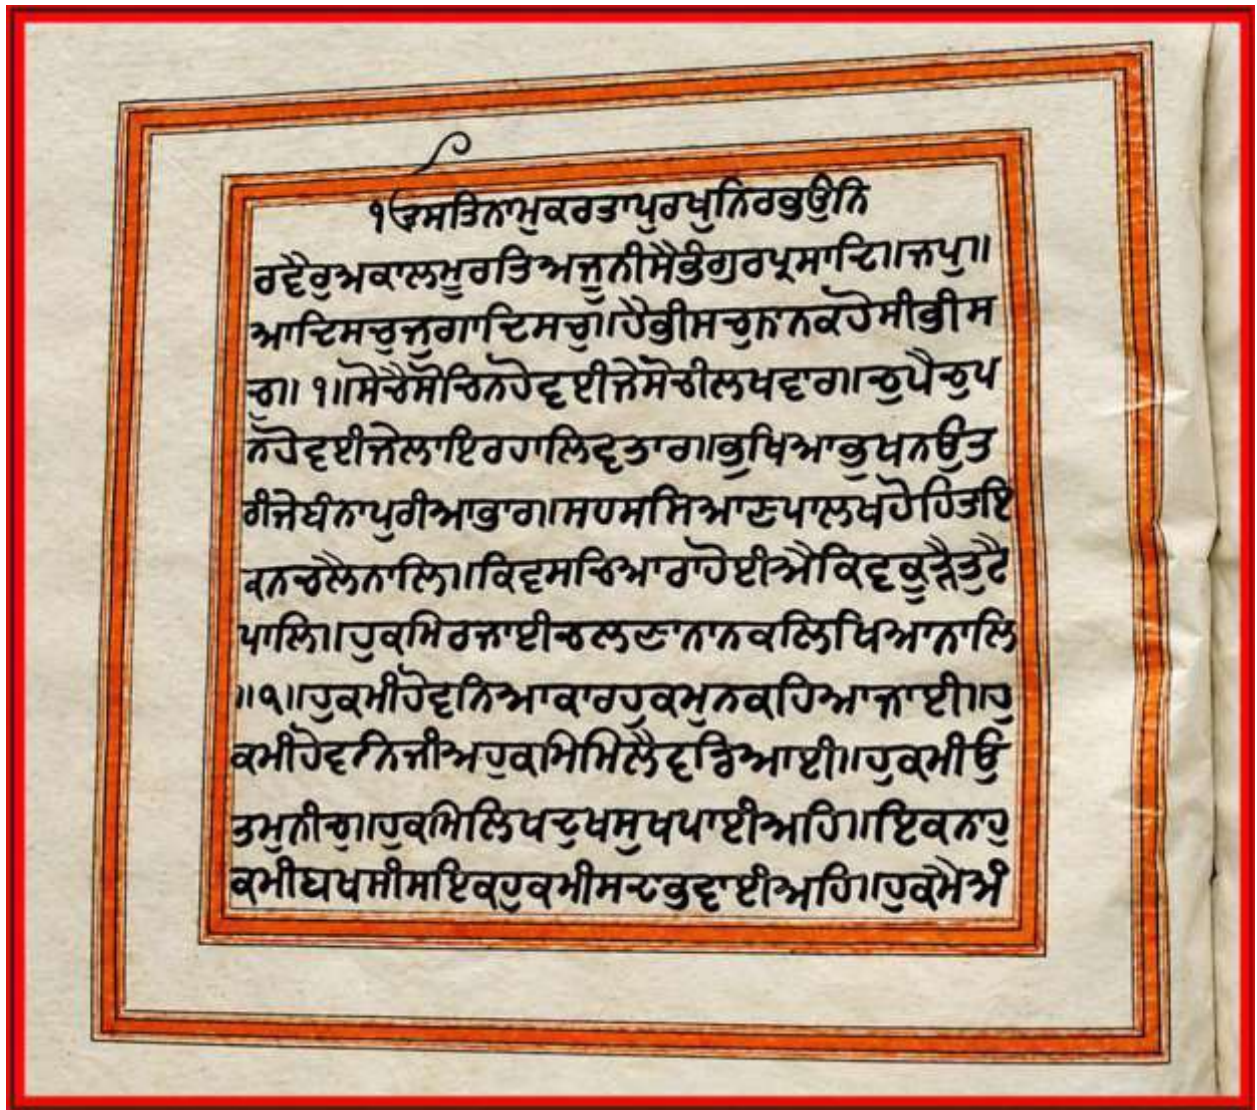 ੴਸਤਿਨਾਮੁਕਰਤਾਪੁਰਖੁਨਿਰਭਉਨਿ
ਰਵੈਰੁਅਕਾਲਮੂਰਤਿਅਜੂਨੀਸੈਭੰਗੁਰਪ੍ਰਸਾਦਿ॥ਜਪੁ॥
ਆਦਿਸਚੁਜੁਗਾਦਿਸਚੁ॥ਹੈਭੀਸਚੁਨਾਨਕਹੋਸੀਭੀਸ
ਚੁ॥੧॥ਸੋਚੈਸੋਚਿਨਹੋਵਈਜੇਸੋਚੀਲਖਵਾਰ॥ਚੁਪੈਚੁਪ
ਨਹੋਵਈਜੇਲਾਇਰਹਾਲਿਵਤਾਰ॥ਭੁਖਿਆਭੁਖਨਉਤ
ਰੀਜੇਬੰਨਾਪੁਰੀਆਭਾਰ॥ਸਹਸਸਿਆਣਪਾਲਖਹੋਹਿਤਇ
ਕਨਚਲੈਨਾਲਿ॥ਕਿਵਸਚਿਆਰਾਹੋਈਐਕਿਵਕੂੜੈਤੁਟੈ
ਪਾਲਿ॥ਹੁਕਮਿਰਜਾਈਚਲਣਾਨਾਨਕਲਿਖਿਆਨਾਲਿ
॥੧॥ਹੁਕਮੀਹੋਵਨਿਆਕਾਰਹੁਕਮੁਨਕਹਿਆਜਾਈ॥ਹੁ
ਕਮੀਹੋਵਨਿਜੀਅਹੁਕਮਿਮਿਲੈਵਡਿਆਈ॥ਹੁਕਮੀਉ
ਤਮੁਨੀਚੁ॥ਹੁਕਮਿਲਿਖਦੁਖਸੁਖਪਾਈਅਹਿ॥ਇਕਨਾਹੁ
ਕਮੀਬਖਸੀਸਇਕਹੁਕਮੀਸਦਾਭਵਾਈਅਹਿ॥ਹੁਕਮੈਅੰ